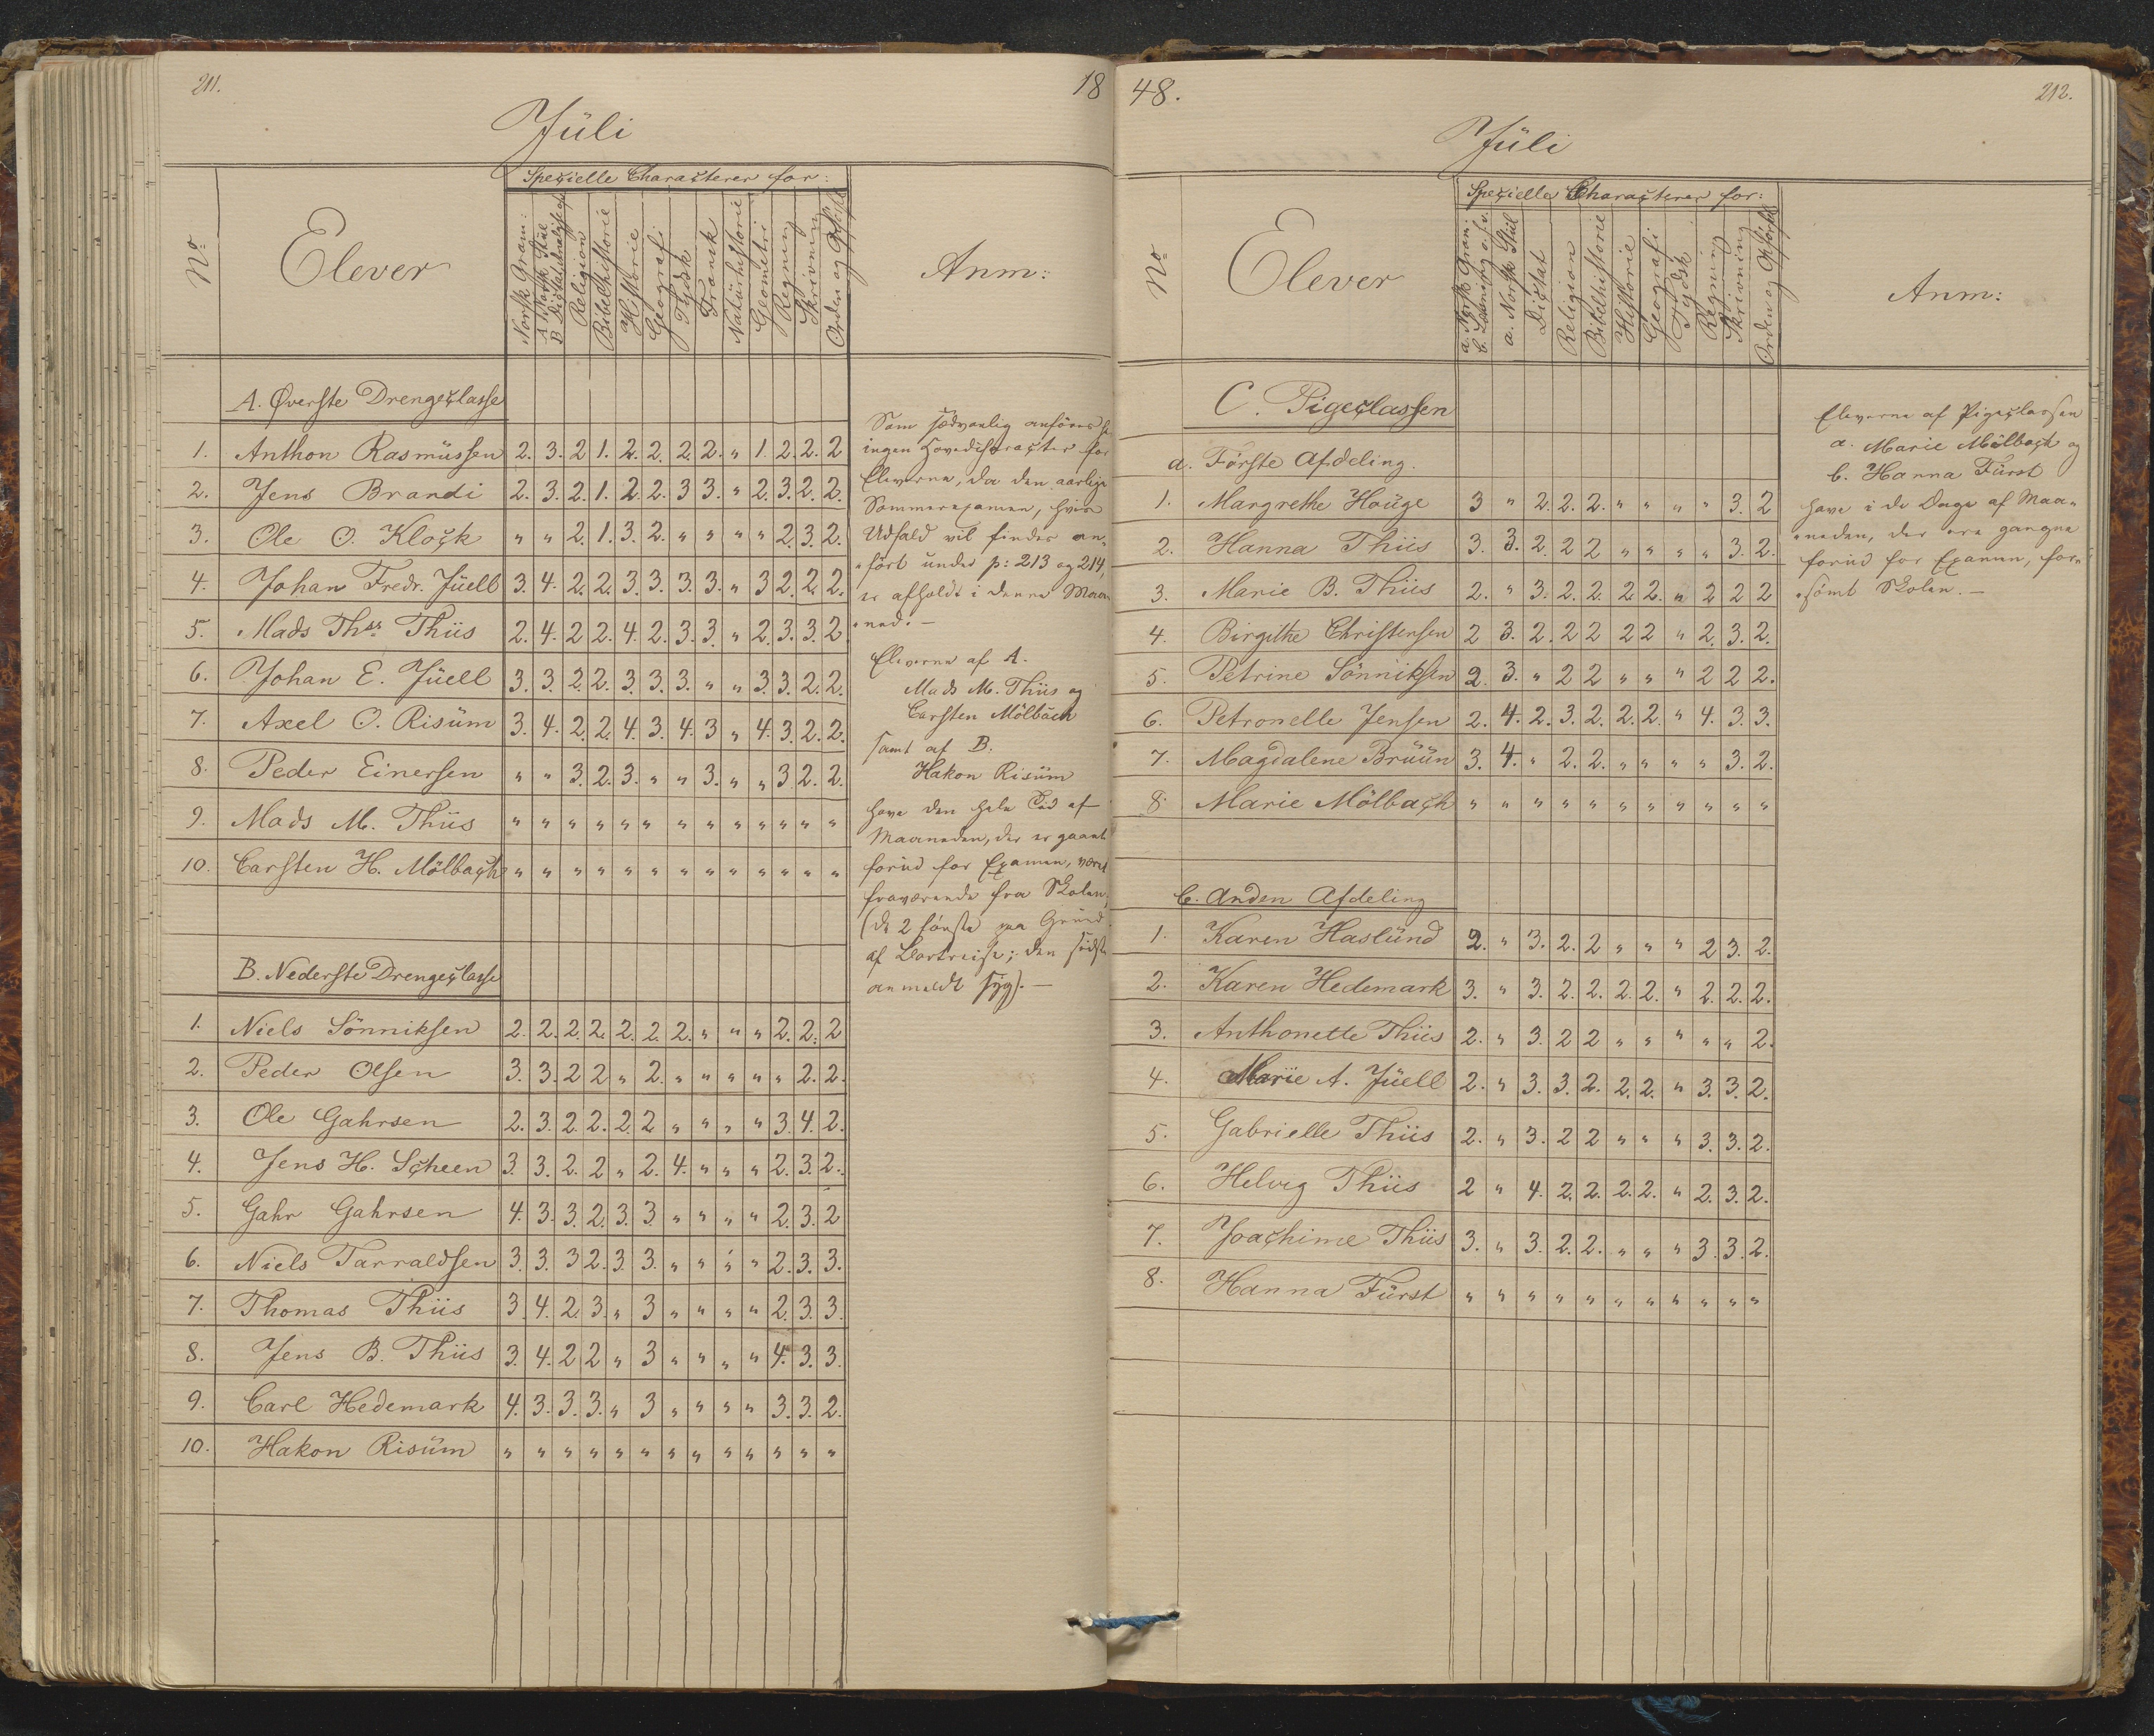 211.
18
Jüli
Specielle Characterer for:
No
Elever
Norsk Gram:
A. Norsk Stiil
B. Dictat
Religion
Bibelhistorie
Historie
Geografi
Tydsk
Fransk
Natürhistorie
Geometri
Regning
Skrivning
Orden og Opførsel
Anm:
A. Øverste Drengeclasse
1. Anthon Rasmüssen 2. 3. 2 1. 2. 2. 2. 2. " 1. 2. 2. 2
2. Jens Brandi 2. 3. 2. 1. 2. 2. 3 3. " 2. 3. 2. 2.
3. Ole O. Klock " " 2. 1. 3. 2. " " " " 2. 3. 2.
4. Johan Fredr. Jüell 3. 4. 2. 2. 3. 3. 3. 3. " 3 2. 2. 2.
5. Mads Thss. Thiis 2. 4. 2 2. 4. 2. 3. 3. " 2. 3. 3. 2
6. Johan E. Jüell 3. 3. 2. 2. 3. 3. 3. " " 3. 3. 2. 2.
7. Axel O. Risüm 3. 4. 2. 2. 4. 3. 4. 3 " 4. 3. 2. 2.
8. Peder Einersen " " 3. 2. 3. " " 3. " " 3 2. 2.
9. Mads M. Thiis " " " " " " " " " " " " "
10. Carsten H. Mölbach " " " " " " " " " " " " "
B. Nederste Drengeclasse
1. Niels Sönniksen 2. 2. 2. 2. 2. 2. 2. " " " 2. 2. 2
2. Peder Olsen 3. 3. 2 2. " 2. " " " " " 2. 2.
3. Ole Gahrsen 2. 3. 2. 2. 2. 2. " " " " 3. 4. 2.
4. Jens H. Scheen 3. 3. 2. 2 " 2. 4. " " " 2. 3. 2.
5. Gahr Gahrsen 4. 3. 3. 2. 3. 3. " " " " 2. 3. 2
6. Niels Tarraldsen 3. 3. 3 2. 3. 3. " " " " 2. 3. 3.
7. Thomas Thiis 3. 4. 2. 3. " 3 " " " " 2. 3. 3.
8. Jens B. Thiis 3. 4. 2 2. " 3 " " " " 4. 3. 3.
9. Carl Hedemark 4. 3. 3. 3. " 3 " " " " 3. 3. 2.
10. Hakon Risüm " " " " " " " " " " " " "
Som sædvanlig anföres
ingen Hovedcharacter for
Eleverne, da den aarlige
Sommerexamen, hvis
Udfald vil findes an-
"fört under p: 213 og 214,
er afholdt i denne Maa-
"ned. —
Eleverne af A.
Mads M. Thiis og
Carsten Mölbach
samt af B.
Hakon Risüm
have den hele Tid af
Maaneden, der er gaaet
forud for Examen, været
fraværende fra Skolen,
(de 2 förste paa Grund
af Bortreise; den sidste
anmeldt syg). —
48.
212.
Jüli
Specielle Characterer for:
No
Elever
a. Norsk Gram:
b. Læsning o. s. v.
a. Norsk Stiil
Dictat
Religion
Bibelhistorie
Historie
Geografi
Tydsk
Regning
Skrivning
Orden og Opførsel
Anm:
C. Pigeclassen
a. Förste Afdeling.
1. Margrethe Houge 3 " 2. 2. 2. " " " " 3. 2
2. Hanna Thiis 3. 3. 2. 2 2 " " " " 3. 2.
3. Marie B. Thiis 2. " 3. 2. 2. 2. 2. " 2 2 2
4. Birgithe Christensen 2 3. 2. 2 2 2 2 " 2. 3. 2.
5. Petrine Sönniksen 2. 3. " 2 2 " " " 2 2 2.
6. Petronelle Jensen 2. 4. 2. 3. 2. 2. 2. " 4. 3. 3.
7. Magdalene Brüün 3. 4. " 2. 2. " " " " 3. 2.
8. Marie Mölbach " " " " " " " " " " "
b. Anden Afdeling
1. Karen Haslünd 2. " 3. 2. 2 " " " 2 3. 2.
2. Karen Hedemark 3. " 3. 2. 2. 2. 2. " 2. 2. 2.
3. Anthonette Thiis 2. " 3. 2 2 " " " " " 2.
4. Marie A. Jüell 2. " 3. 3. 2. 2. 2. " 3. 3. 2.
5. Gabrielle Thiis 2. " 3. 2 2 " " " 3. 3. 2.
6. Helvig Thiis 2 " 4. 2. 2. 2. 2. " 2. 3. 2.
7. Joachime Thiis 3. " 3. 2. 2. " " " 3. 3. 2.
8. Hanna Fürst " " " " " " " " " " "
Eleverne af Pigeclassen
a. Marie Mölbach og
b. Hanna Fürst
have i de Dage af Maa-
"neden, der ere gangne
forud for Examen, for-
"sömt Skolen. —